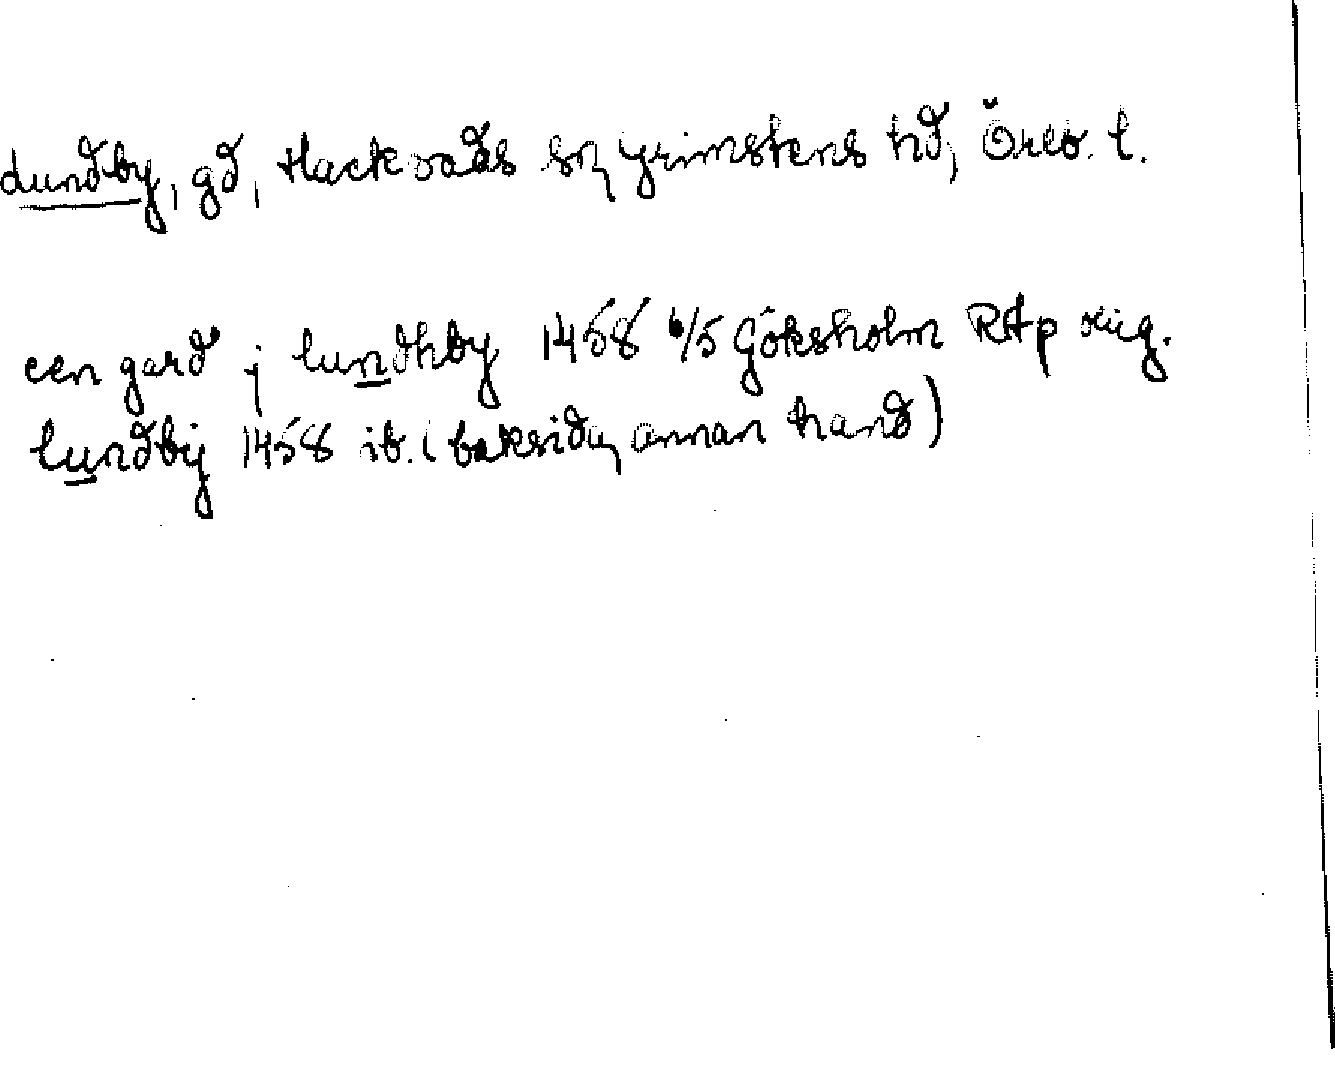 Lundby, gd, Hackvads sn, Grimstens hd, Örebr. l.
een gard j lundhby 1458 6/5 Göksholm RAp orig.
lundbij 1458 ib. (baksida, annan hand)